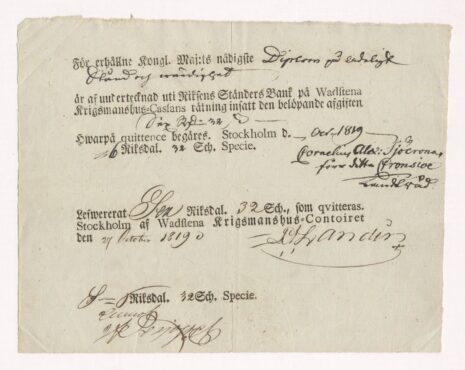 För erhållne Kongl. Maj:ts nådigste Diplom på adeligt
Stånd och wärdighet
är af undertecknad uti Riksens Ständers Bank på Wadstena
Krigsmanshus-Cassans räkning insatt den belöpande afgiften
32
Hwarpå quittence begäres. Stockholm d. Oct. 1819
6 Riksdal. 32 Sch. Specie.
Cornelius Alex: Sjöcrona,
förr detta
Landtråd
Lefwererat Riksdal. 32 Sch., som qvitteras.
Stockholm af Wadstena Krigsmanshus-Contoiret
den 27 October 1819
Riksdal. 32 Sch. Specie.